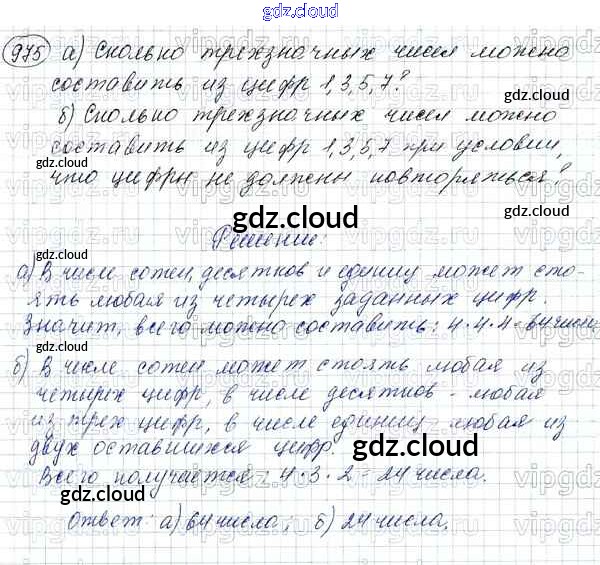 gdz.cloud
975 а) Сколько трехзначных чисел можно
составить из цифр 1,3,5,7?
gdz.cloud
б) Сколько трехзначных чисел можно
составить из цифр 1,3,5,7 при условии,
gdz.cloud gdz.cloud
что цифры не должны повторяться?
gdz.cloud
Решение:
а) В числе сотен, десятков и единиц может сто-
ять любая из четырех заданных цифр.
Значит, всего можно составить: 4·4·4=64 числа
gdz.cloud gdz.cloud
б) В числе сотен может стоять любая из
четырех цифр, в числе десятков - любая
из трех цифр, в числе единиц любая из
двух оставшихся цифр.
gdz.cloud
Всего получается: 4·3·2=24 числа.
gdz.cloud gdz.cloud
Ответ: а) 64 числа; б) 24 числа.